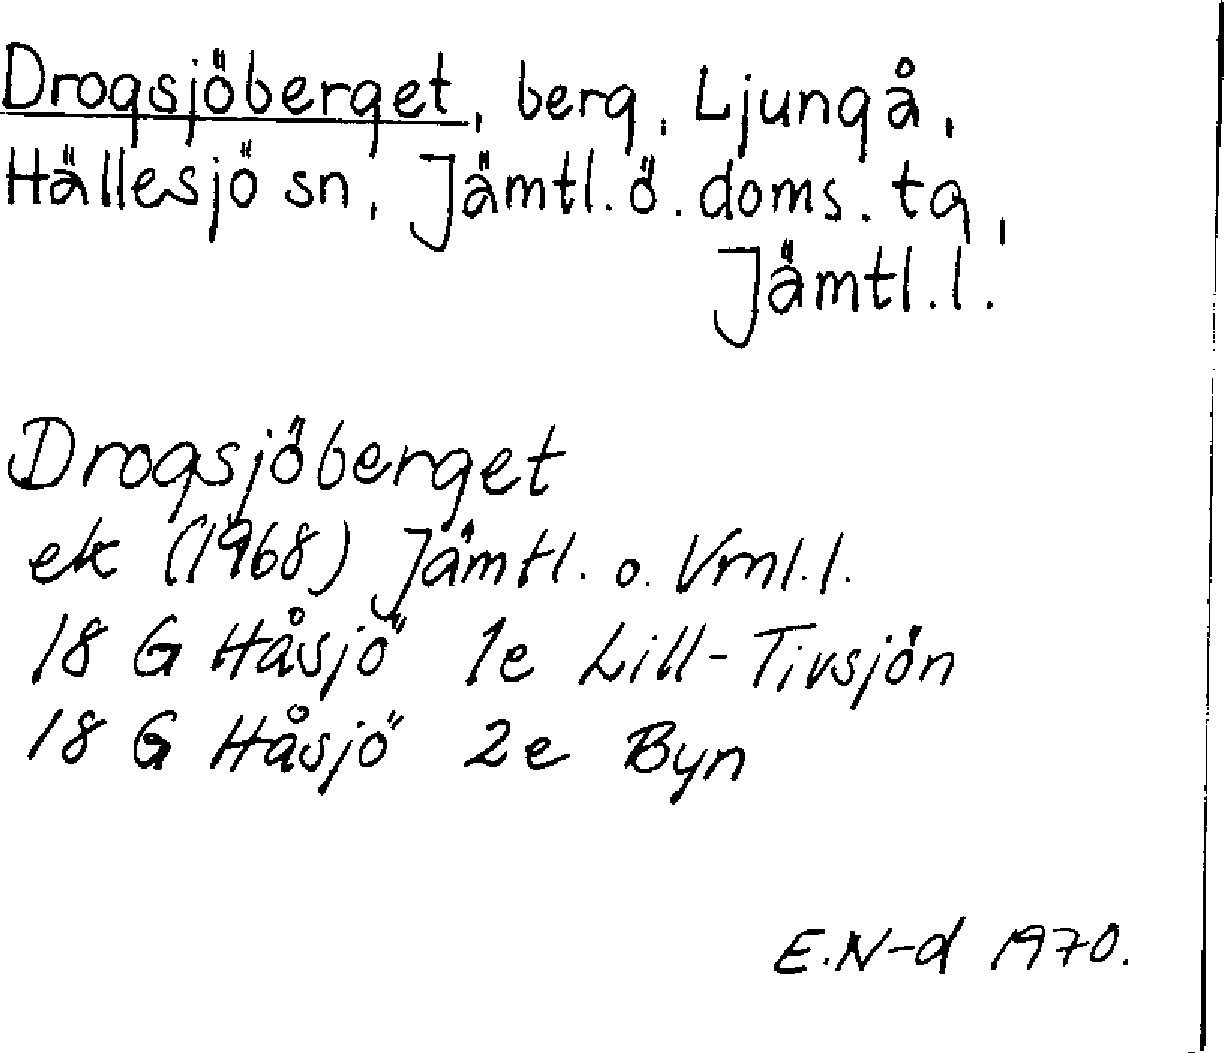 Drogsjöberget, berg, Ljungå,
Hällesjö sn, Jämtl. ö. doms. tg,
Jämtl. l.
Drogsjöberget
ek (1968) Jämtl. o. Vrnl. l.
18 G Håsjö 1e Lill-Tivsjön
18 G Håsjö 2e Byn
E.N-d 1970.